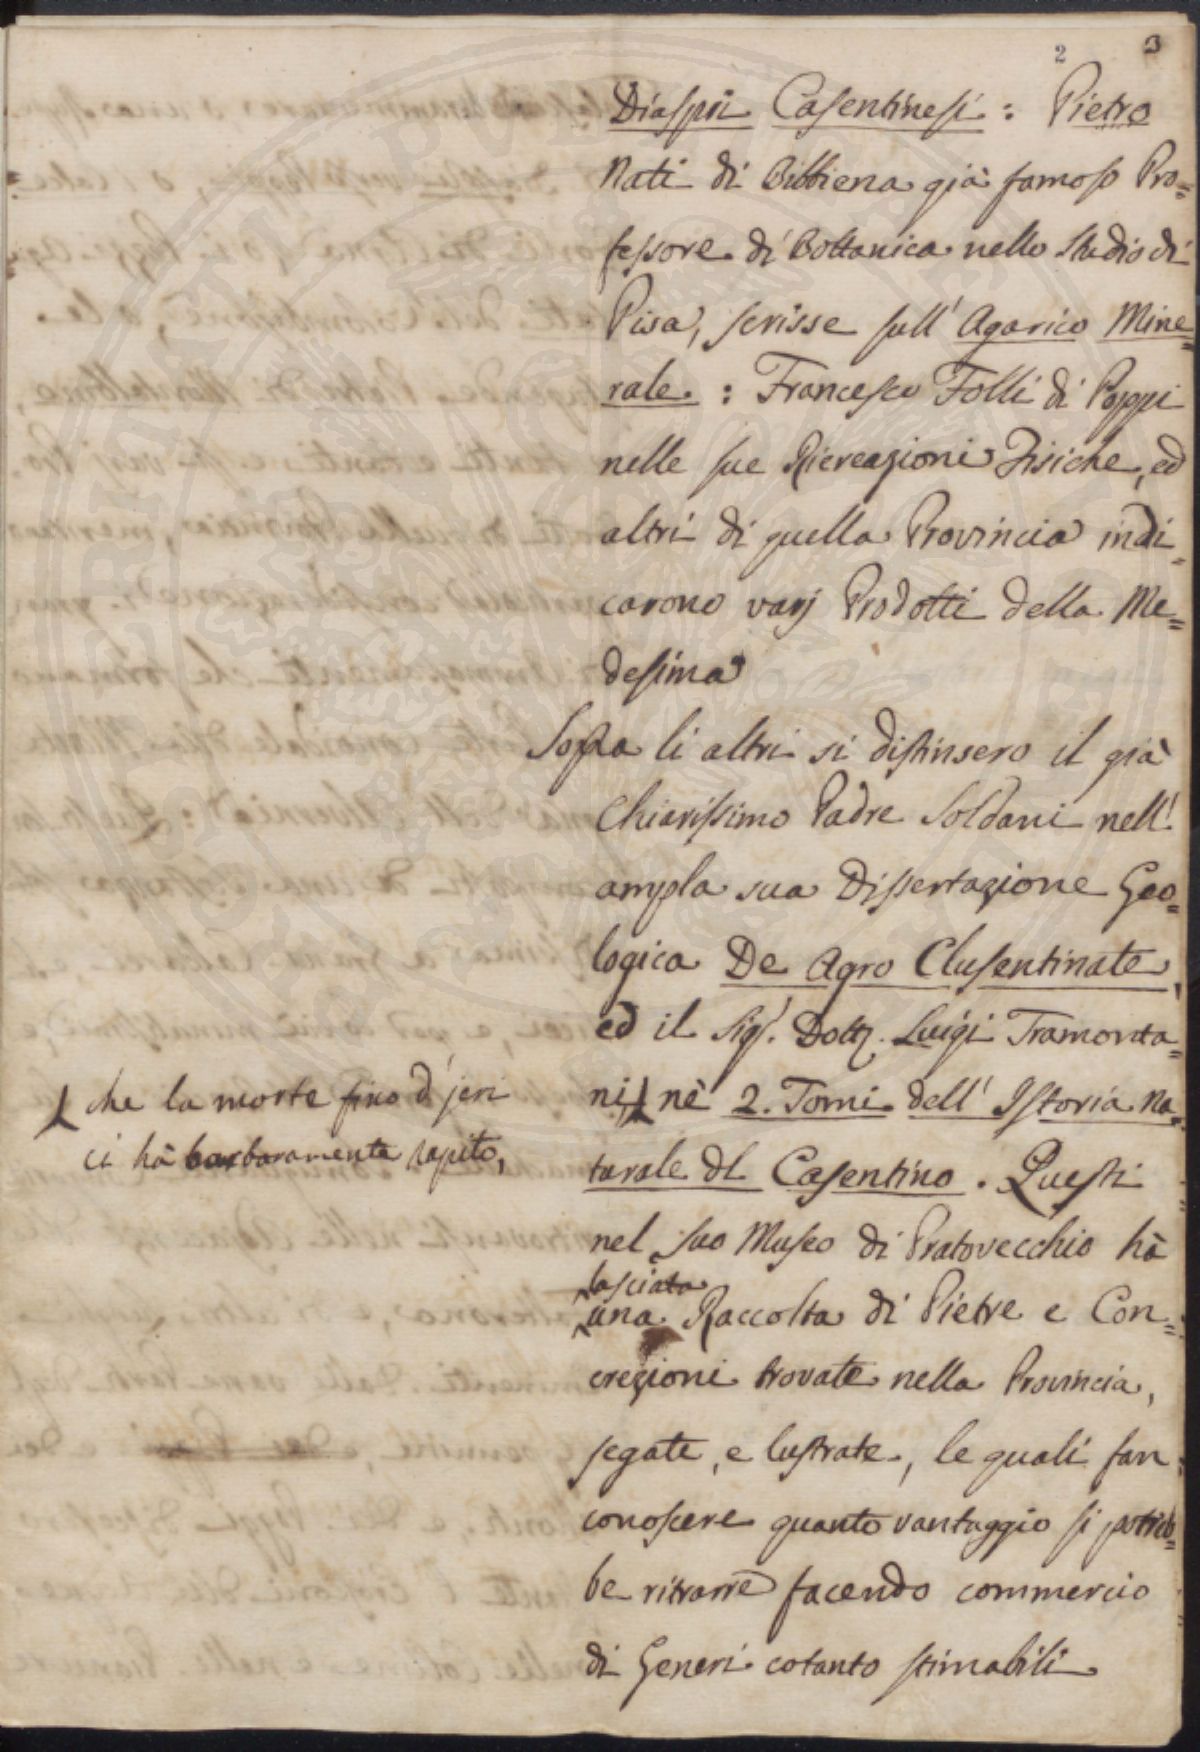 2 3
Diaspri Casentinesi : Pietro
Nati di Bibbiena già famoso Pro=
fessore di Bottanica nello Studio di
Pisa, scrisse sull' Agarico Mine=
rale. : Francesco Folli di Poppi
nelle sue Ricreazioni Fisiche, ed
altri di quella Provincia indi=
carono varj Prodotti della Me=
desima
Sopra li altri si distinsero il già
Chiarissimo Padre Soldani nell'
ampla sua Dissertazione Geo=
logica De Agro Clusentinate,
ed il Sigr. Dottr. Luigi Tramonta=
ni, nè 2. Tomi dell' Istoria Na=
che la morte fino d' jeri
ci hà barbaramente rapito,
turale dl Casentino. Questi
nel suo Museo di Pratovecchio hà
lasciata
una Raccolta di Pietre e Con=
crezioni trovate nella Provincia,
segate, e lustrate, le quali fan
conoscere quanto vantaggio si potreb=
be ritrarre facendo commercio
di Generi cotanto stimabili